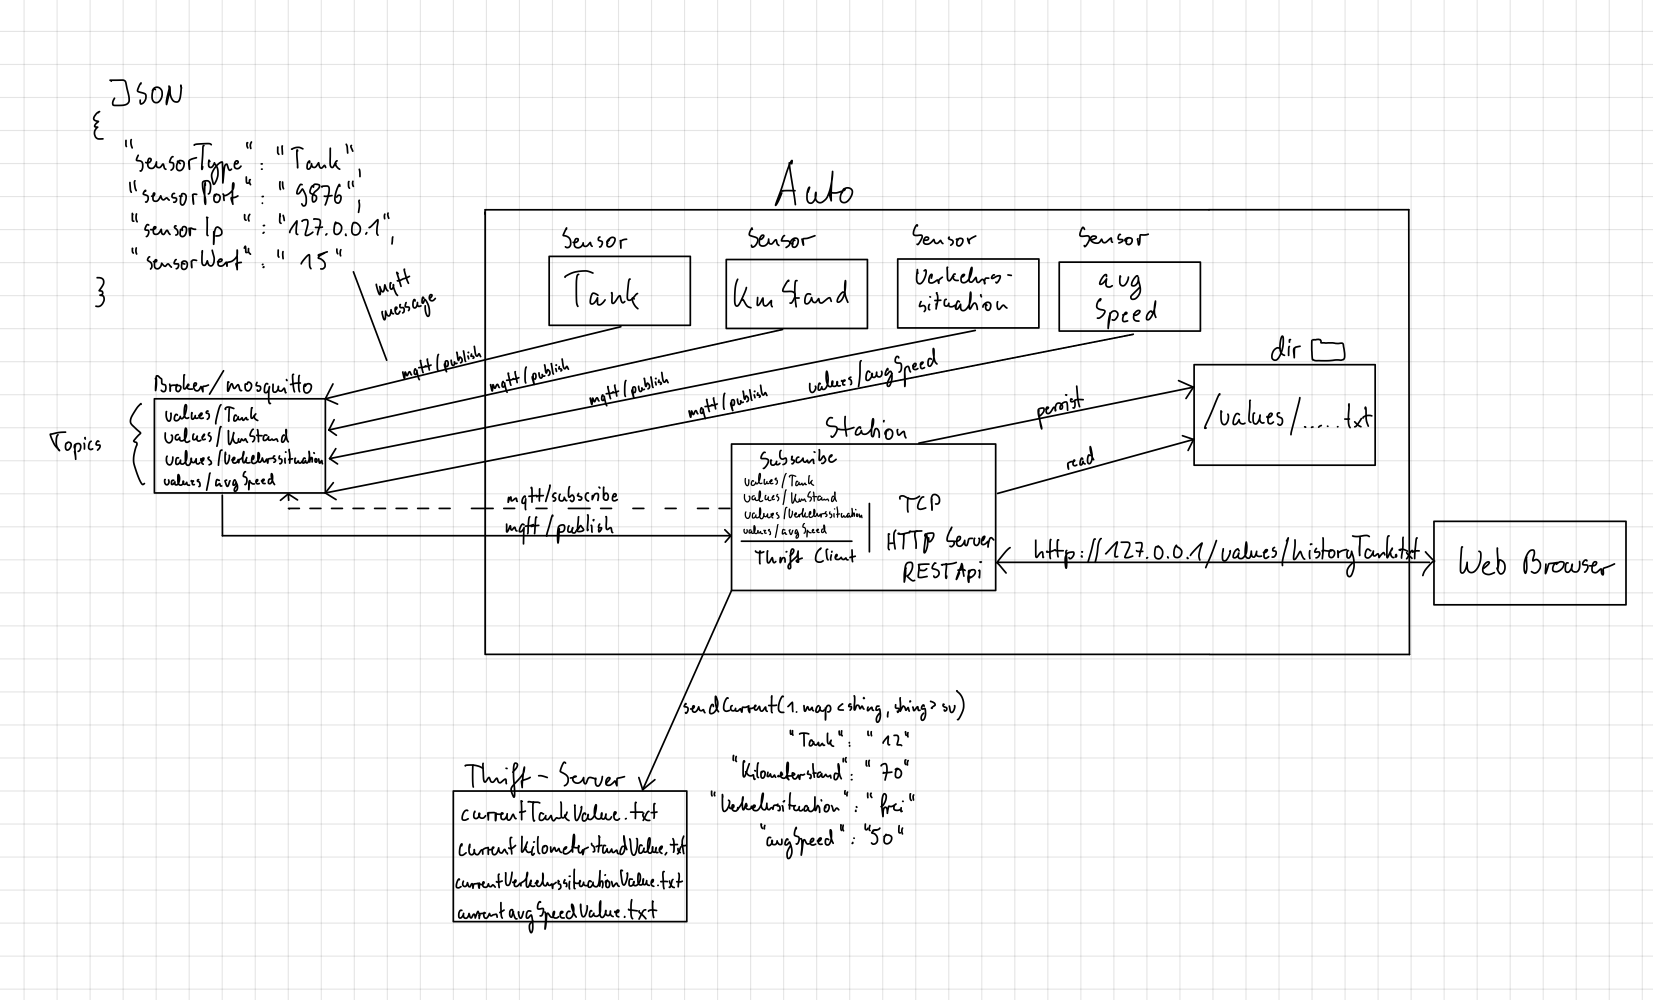 JSON
{
"sensorType" : "Tank",
"sensorPort" : "9876",
"sensorIp" : "127.0.0.1",
"sensorWert" : "15"
}
mqtt
message
Auto
Sensor
Tank
Sensor
KmStand
Sensor
Verkehrs-
situation
Sensor
avg
Speed
mqtt/publish
mqtt/publish
mqtt/publish
mqtt/publish
values/avgSpeed
Broker/mosquitto
Topics
values/Tank
values/KmStand
values/Verkehrssituation
values/avgSpeed
dir
/values/.....txt
persist
read
Station
Subscribe
values/Tank
values/KmStand
values/Verkehrssituation
values/avgSpeed
Thrift Client
TCP
HTTP Server
RESTApi
mqtt/subscribe
mqtt/publish
http://127.0.0.1/values/historyTank.txt
Web Browser
sendCurrent(1.map<string,string> sv)
"Tank" : "12"
"Kilometerstand" : "70"
"Verkehrsituation" : "frei"
"avgSpeed" : "50"
Thrift-Server
currentTankValue.txt
currentKilometerstandValue.txt
currentVerkehrssituationValue.txt
currentavgSpeedValue.txt